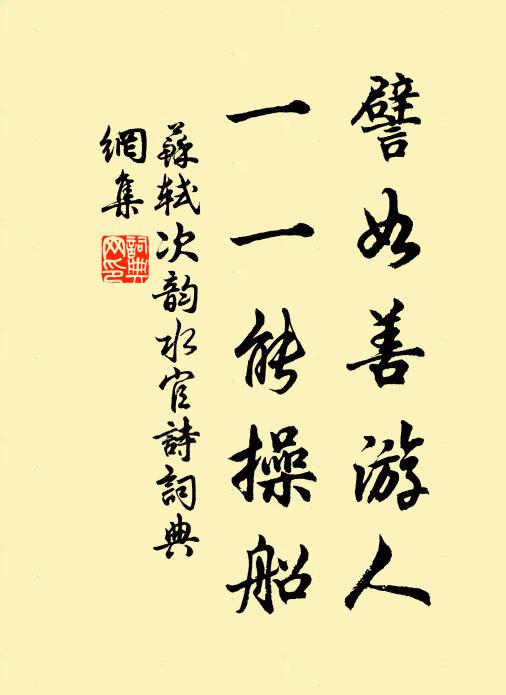 譬如善游人
一一能操船
蘇軾次韵水官詩詞典
網集
詞典
网印